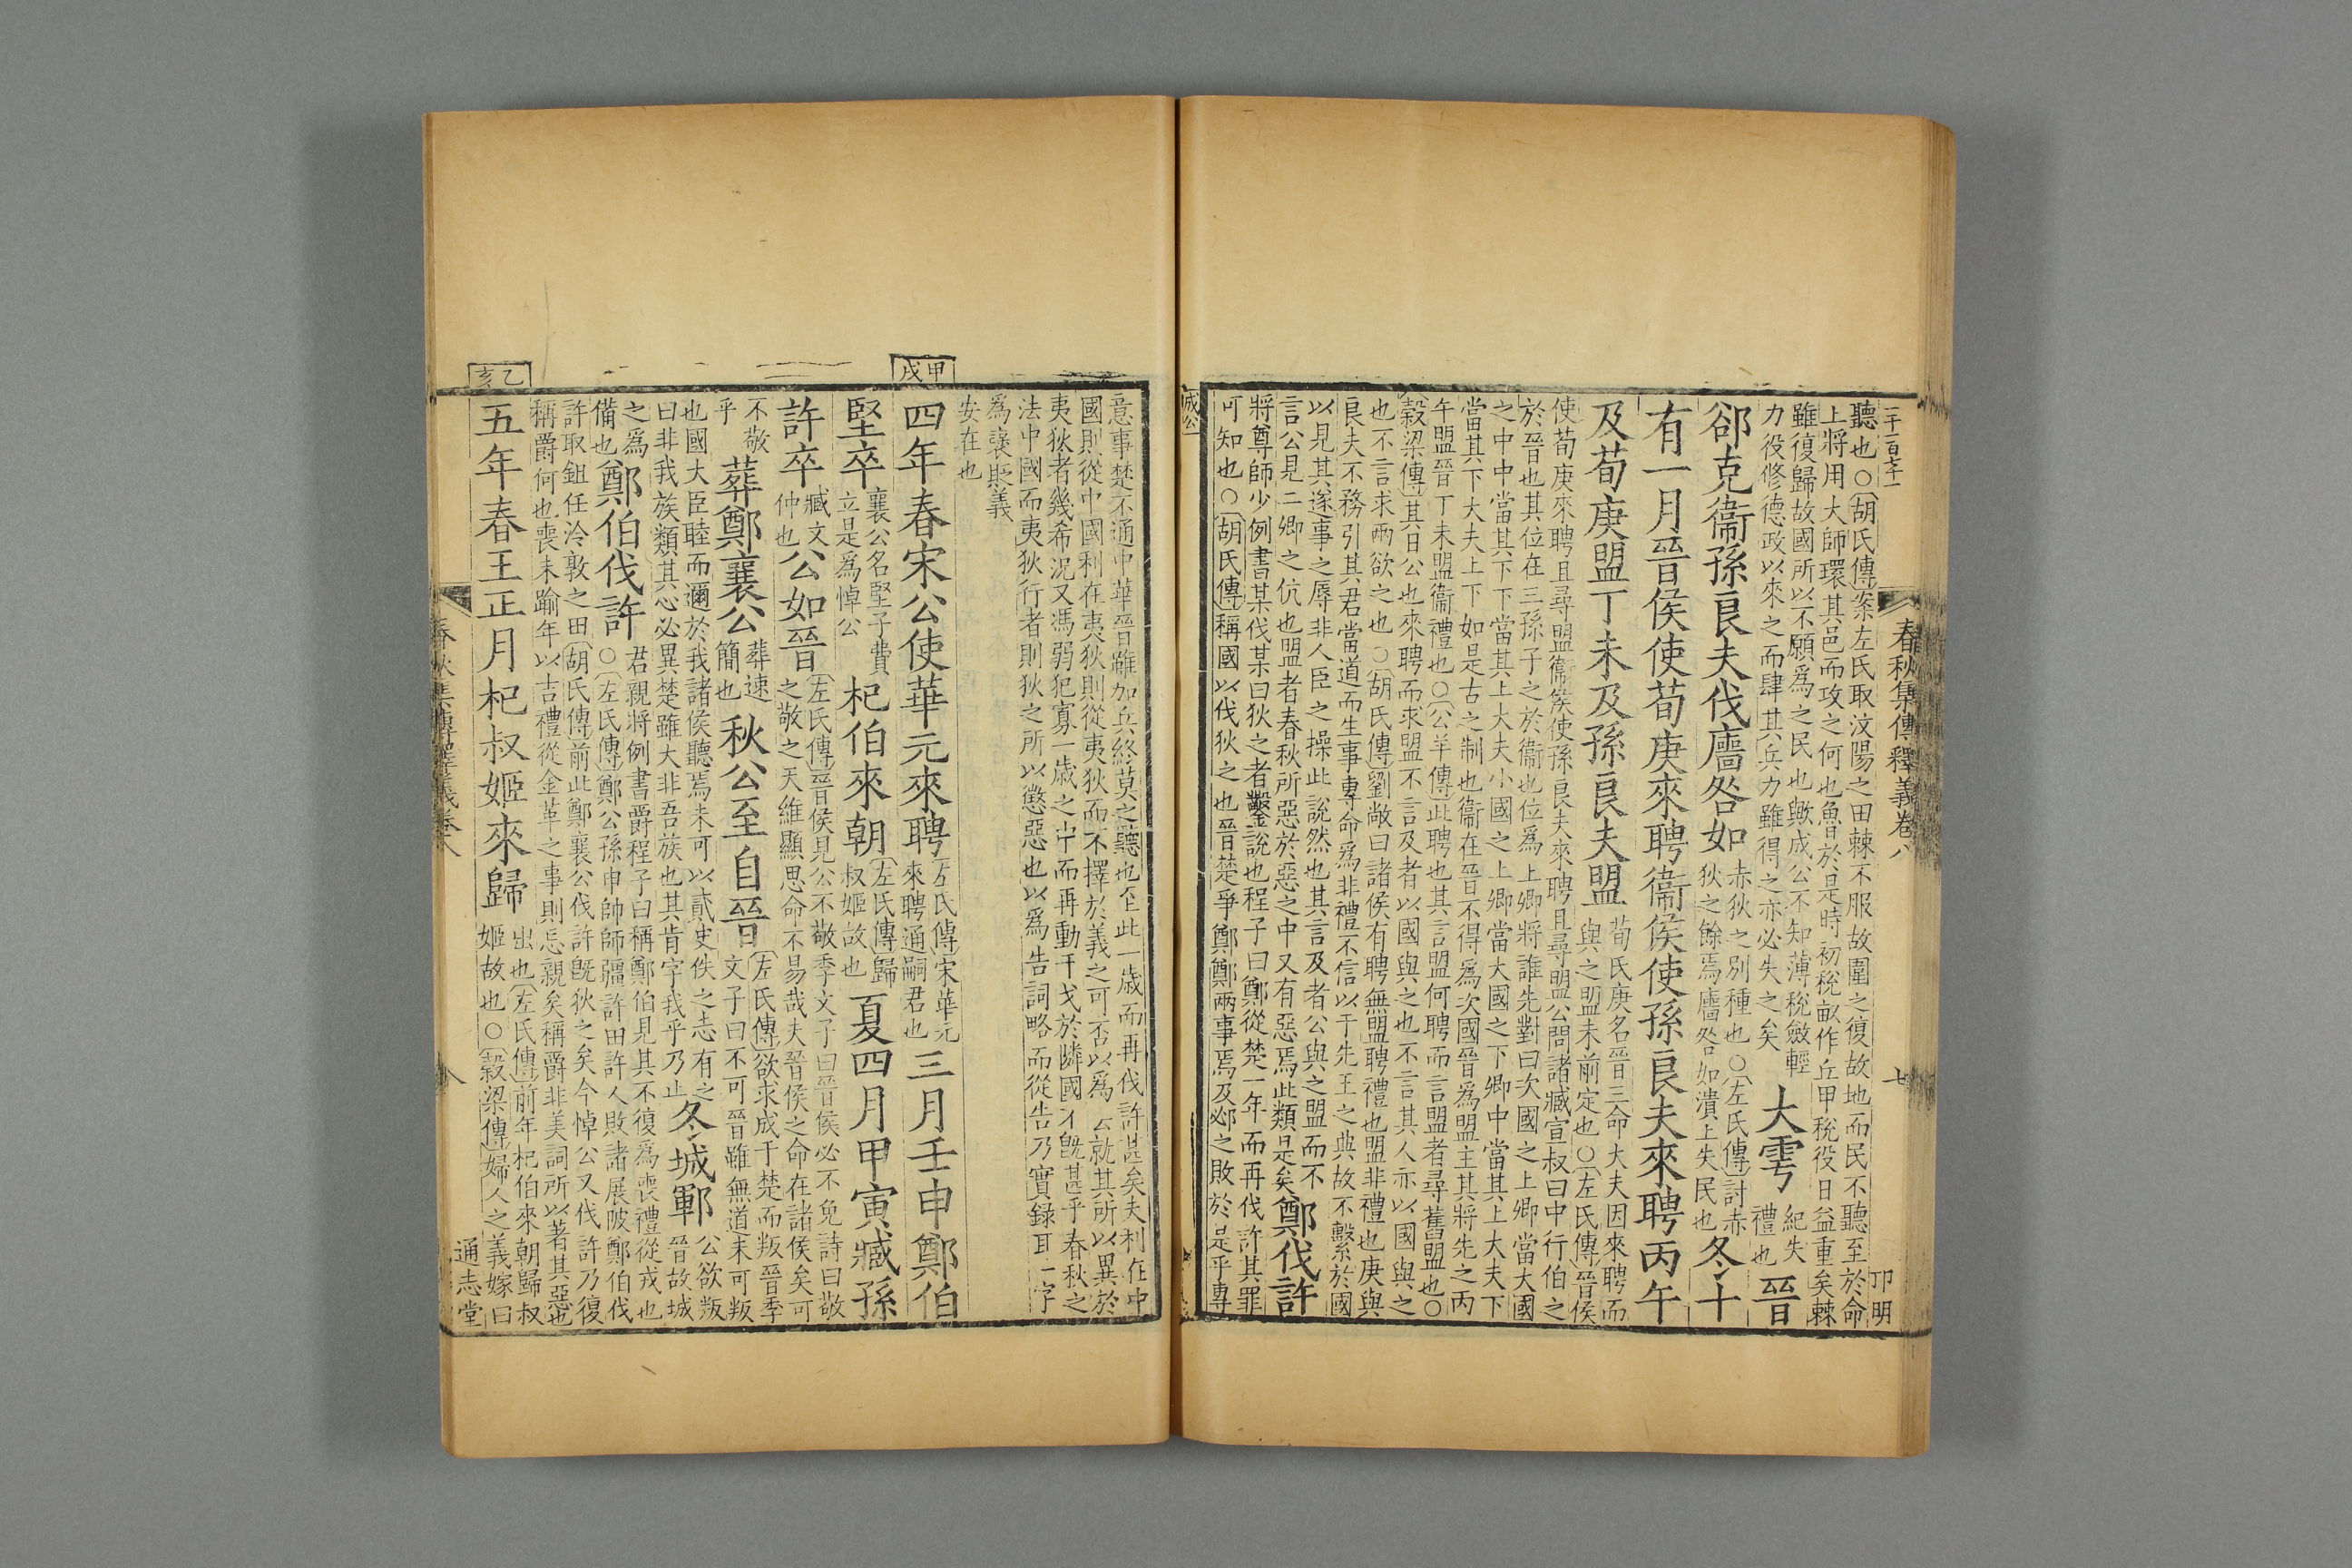 春秋集傳釋義卷八
七
卬明
聽也○胡氏傳案左氏取汶陽之田棘不服故圍之復故地而民不聽至於命
上將用大師環其邑而攻之何也魯於是時初稅畝作丘甲稅役日益重矣棘
雖復歸故國所以不願為之民也歟成公不知薄稅斂輕
力役修德政以來之而肆其兵力雖得之亦必失之矣
大雩
紀失
禮也
晉
郤克衞孫良夫伐廧咎如
赤狄之別種也○左氏傳討赤
狄之餘焉廧咎如潰上失民也
冬十
有一月晉侯使荀庚來聘衞侯使孫良夫來聘丙午
及荀庚盟丁未及孫良夫盟
荀氏庚名晉三命大夫因來聘而
與之盟未前定也○左氏傳晉侯
使荀庚來聘且尋盟衞侯使孫良夫來聘且尋盟公問諸臧宣叔曰中行伯之
於晉也其位在三孫子之於衞也位為上卿將誰先對曰次國之上卿當大國
之中中當其下下當其上大夫小國之上卿當大國之下卿中當其上大夫下
當其下大夫上下如是古之制也衞在晉不得為次國晉為盟主其將先之丙
午盟晉丁未盟衞禮也○公羊傳此聘也其言盟何聘而言盟者尋舊盟也○
穀梁傳其日公也來聘而求盟不言及者以國與之也不言其人亦以國與之
也不言求兩欲之也○胡氏傳劉敞曰諸侯有聘無盟聘禮也盟非禮也庚與
良夫不務引其君當道而生事專命為非禮不信以干先王之典故不繫於國
以見其遂事之辱非人臣之操此說然也其言及者公與之盟而不
言公見二卿之伉也盟者春秋所惡於惡之中又有惡焉此類是矣
鄭伐許
將尊師少例書某伐某曰狄之者鑿說也程子曰鄭從楚一年而再伐許其罪
可知也○胡氏傳稱國以伐狄之也晉楚爭鄭鄭兩事焉及邲之敗於是乎專
成公
意事楚不通中華晉雖加兵終莫之聽也至此一歲而再伐許甚矣夫利在中
國則從中國利在夷狄則從夷狄而不擇於義之可否以為去就其所以異於
夷狄者幾希況又馮弱犯寡一歲之中而再動干戈於隣國不旣甚乎春秋之
法中國而夷狄行者則狄之所以懲惡也以為告詞略而從告乃實錄耳一字
為襃貶義
安在也
甲戌
四年春宋公使華元來聘
左氏傳宋華元
來聘通嗣君也
三月壬申鄭伯
堅卒
襄公名堅子費
立是為悼公
杞伯來朝
左氏傳歸
叔姬故也
夏四月甲寅臧孫
許卒
臧文
仲也
公如晉
左氏傳晉侯見公不敬季文子曰晉侯必不免詩曰敬
之敬之天維顯思命不易哉夫晉侯之命在諸侯矣可
不敬
乎
葬鄭襄公
葬速
簡也
秋公至自晉
左氏傳欲求成于楚而叛晉季
文子曰不可晉雖無道未可叛
也國大臣睦而邇於我諸侯聽焉未可以貳史佚之志有之
曰非我族類其心必異楚雖大非吾族也其肯字我乎乃止
冬城鄆
公欲叛
晉故城
之為
備也
鄭伯伐許
君親將例書爵程子曰稱鄭伯見其不復為喪禮從戎也
○左氏傳鄭公孫申帥師疆許田許人敗諸展陂鄭伯伐
許取鉏任泠敦之田胡氏傳前此鄭襄公伐許旣狄之矣今悼公又伐許乃復
稱爵何也喪未踰年以吉禮從金革之事則忘親矣稱爵非美詞所以著其惡也
乙亥
五年春王正月杞叔姬來歸
出也左氏傳前年杞伯來朝歸叔
姬故也○穀梁傳婦人之義嫁曰
通志堂